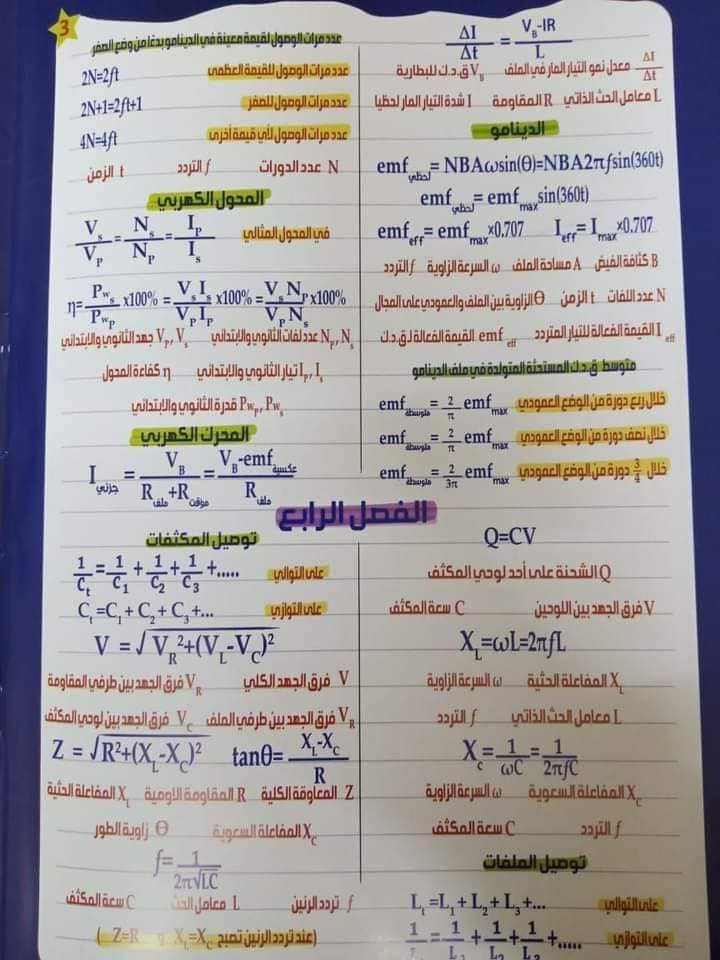 3
ΔI/Δt = (V_B-IR)/L
ΔI/Δt معدل نمو التيار المار في الملف V_B ق.د.ك للبطارية
L معامل الحث الذاتي R المقاومة I شدة التيار المار لحظيا
الدينامو
emf لحظي = NBAωsin(Θ)=NBA2πfsin(360t)
emf لحظي = emf_max sin(360t)
emf_eff = emf_max ×0.707 I_eff = I_max ×0.707
B كثافة الفيض A مساحة الملف ω السرعة الزاوية f التردد
N عدد اللفات t الزمن Θ الزاوية بين الملف والعمودي على المجال
I_eff القيمة الفعالة للتيار المتردد emf_eff القيمة الفعالة لق.د.ك
متوسط ق.د.ك المستحثة المتولدة في ملف الدينامو
خلال ربع دورة من الوضع العمودي emf متوسطة = 2/π emf_max
خلال نصف دورة من الوضع العمودي emf متوسطة = 2/π emf_max
خلال 3/4 دورة من الوضع العمودي emf متوسطة = 2/3π emf_max
عدد مرات الوصول لقيمة معينة في الدينامو بدءا من وضع الصفر
عدد مرات الوصول للقيمة العظمى 2N=2ft
عدد مرات الوصول للصفر 2N+1=2ft+1
عدد مرات الوصول لأي قيمة أخرى 4N=4ft
N عدد الدورات f التردد t الزمن
المحول الكهربي
في المحول المثالي V_s/V_P = N_s/N_P = I_P/I_s
η= Pw_s/Pw_P x100% = V_s I_s/V_P I_P x100% = V_s N_P/V_P N_s x100%
N_P, N_s عدد لفات الثانوي والابتدائي V_P, V_s جهد الثانوي والابتدائي
I_P, I_s تيار الثانوي والابتدائي η كفاءة المحول
Pw_P, Pw_s قدرة الثانوي والابتدائي
المحرك الكهربي
I جزئي = V_B/(R ملف + R مؤقت) = (V_B-emf عكسية)/R ملف
الفصل الرابع
Q=CV
Q الشحنة على أحد لوحي المكثف
V فرق الجهد بين اللوحين C سعة المكثف
X_L=ωL=2πfL
X_L المفاعلة الحثية ω السرعة الزاوية
L معامل الحث الذاتي f التردد
X_c = 1/ωC = 1/2πfC
X_C المفاعلة السعوية ω السرعة الزاوية
f التردد C سعة المكثف
توصيل الملفات
على التوالي L_t =L_1 + L_2 + L_3 +...
على التوازي 1/ = 1/L_1 + 1/L_2 + 1/L_3 +.....
توصيل المكثفات
على التوالي 1/C_t = 1/C_1 + 1/C_2 + 1/C_3 +.....
على التوازي C_t =C_1 + C_2 + C_3 +...
V = √(V_R²+(V_L-V_C)²)
V فرق الجهد الكلي V_R فرق الجهد بين طرفي المقاومة
V_R فرق الجهد بين طرفي الملف V_C فرق الجهد بين لوحي المكثف
Z = √(R²+(X_L-X_C)²) tanθ= (X_L-X_C)/R
Z المعاوقة الكلية R المقاومة الاومية X_L المفاعلة الحثية
X_C المفاعلة السعوية Θ زاوية الطور
f= 1/2π√LC
f تردد الرنين L معامل الحث C سعة المكثف
(عند تردد الرنين تصبح X_L=X_C و Z=R )